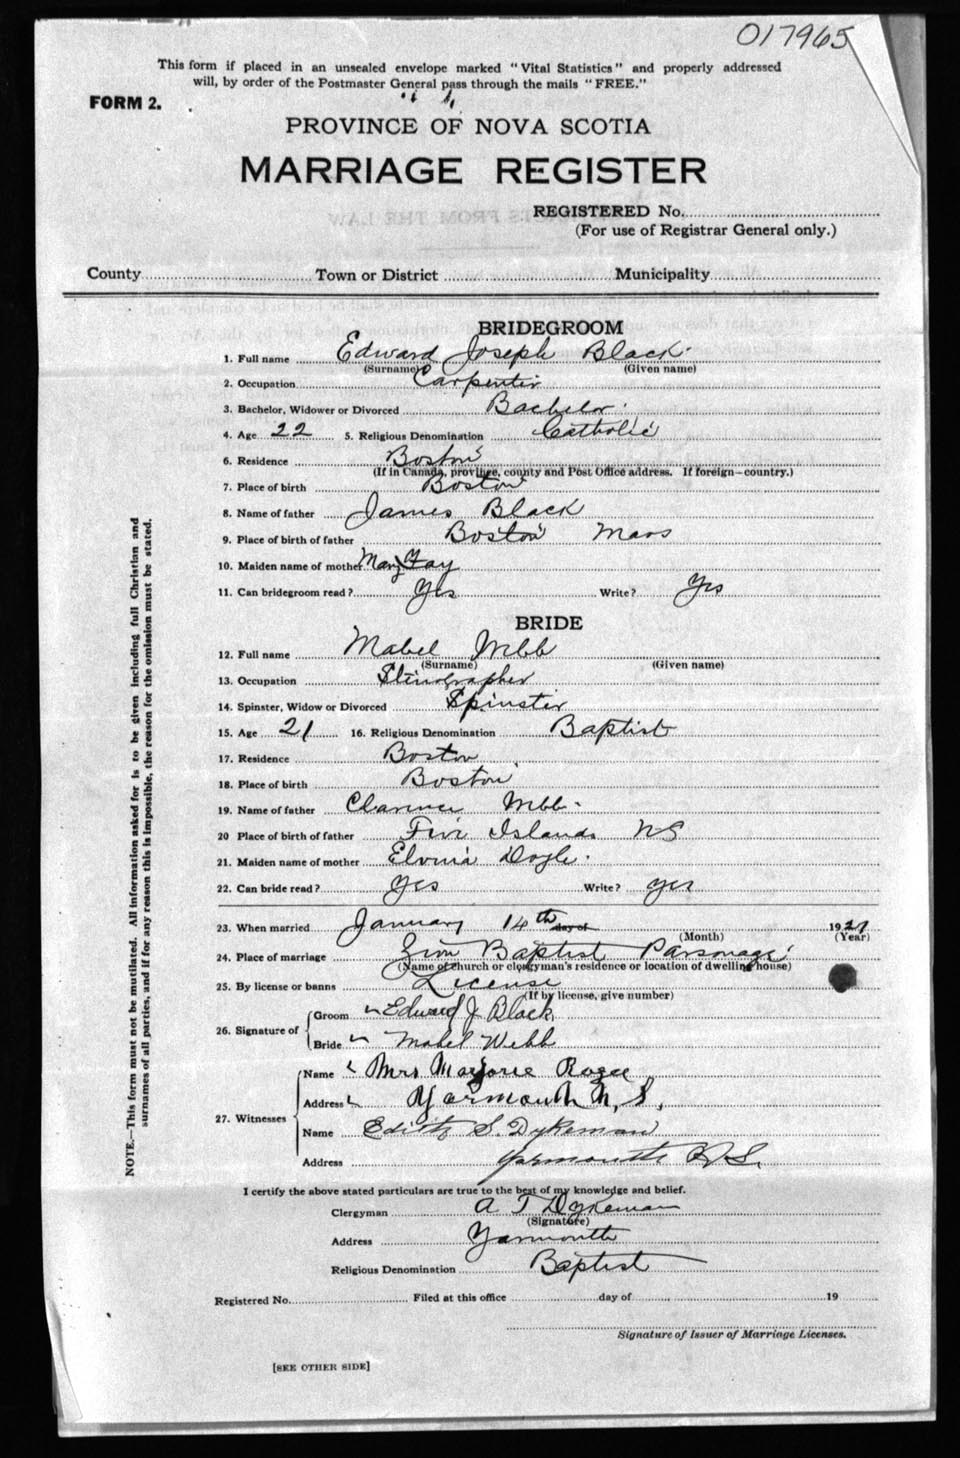 017965
This form if placed in an unsealed envelope marked "Vital Statistics" and properly addressed
will, by order of the Postmaster General pass through the mails "FREE."
FORM 2.
PROVINCE OF NOVA SCOTIA
MARRIAGE REGISTER
REGISTERED No.
(For use of Registrar General only.)
County Town or District Municipality
BRIDEGROOM
1. Full name Edward Joseph Black
(Surname) (Given name)
2. Occupation Carpenter
3. Bachelor, Widower or Divorced Bachelor
4. Age 22 5. Religious Denomination Catholic
6. Residence Boston
(If in Canada, province, county and Post Office address. If foreign—country.)
7. Place of birth Boston
8. Name of father James Black
9. Place of birth of father Boston Mass
10. Maiden name of mother Mary Fay
11. Can bridegroom read? Yes Write? Yes
BRIDE
12. Full name Mabel Webb
(Surname) (Given name)
13. Occupation Stenographer
14. Spinster, Widow or Divorced Spinster
15. Age 21 16. Religious Denomination Baptist
17. Residence Boston
18. Place of birth Boston
19. Name of father Clarence Webb
20 Place of birth of father Five Islands NS
21. Maiden name of mother Doyle
22. Can bride read? Yes Write? Yes
23. When married January 14th day of 1921
(Month) (Year)
24. Place of marriage Zion Baptist Parsonage
(Name of church or clergyman's residence or location of dwelling house)
25. By license or banns License
(If by license, give number)
26. Signature of Groom Edward J. Black
Bride Mabel Webb
27. Witnesses Name Mrs Marjorie
Address Yarmouth N.S.
Name Edith S. Dykeman
Address Yarmouth N.S.
I certify the above stated particulars are true to the best of my knowledge and belief.
Clergyman A T Dykeman
(Signature)
Address Yarmouth
Religious Denomination Baptist
Registered No. Filed at this office day of 19
Signature of Issuer of Marriage Licenses.
[SEE OTHER SIDE]
NOTE.—This form must not be mutilated. All information asked for is to be given including full Christian and
surnames of all parties, and if for any reason this is impossible, the reason for the omission must be stated.